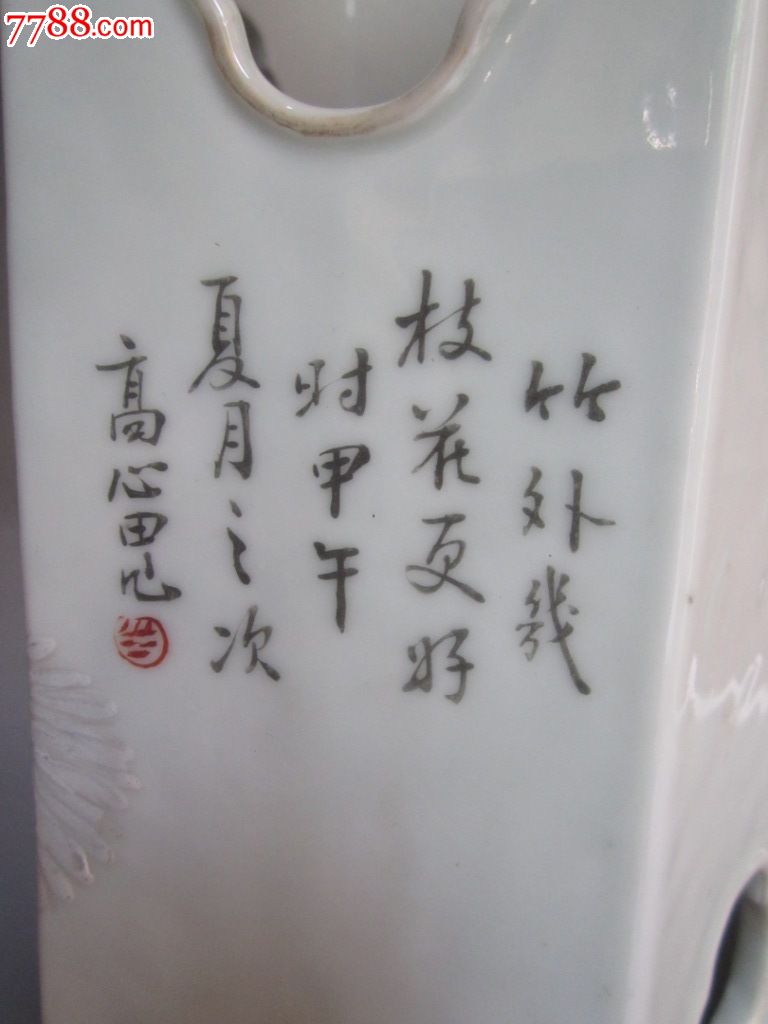 7788.com
竹外幾
枝花更好
时甲午
夏月之次
高心田